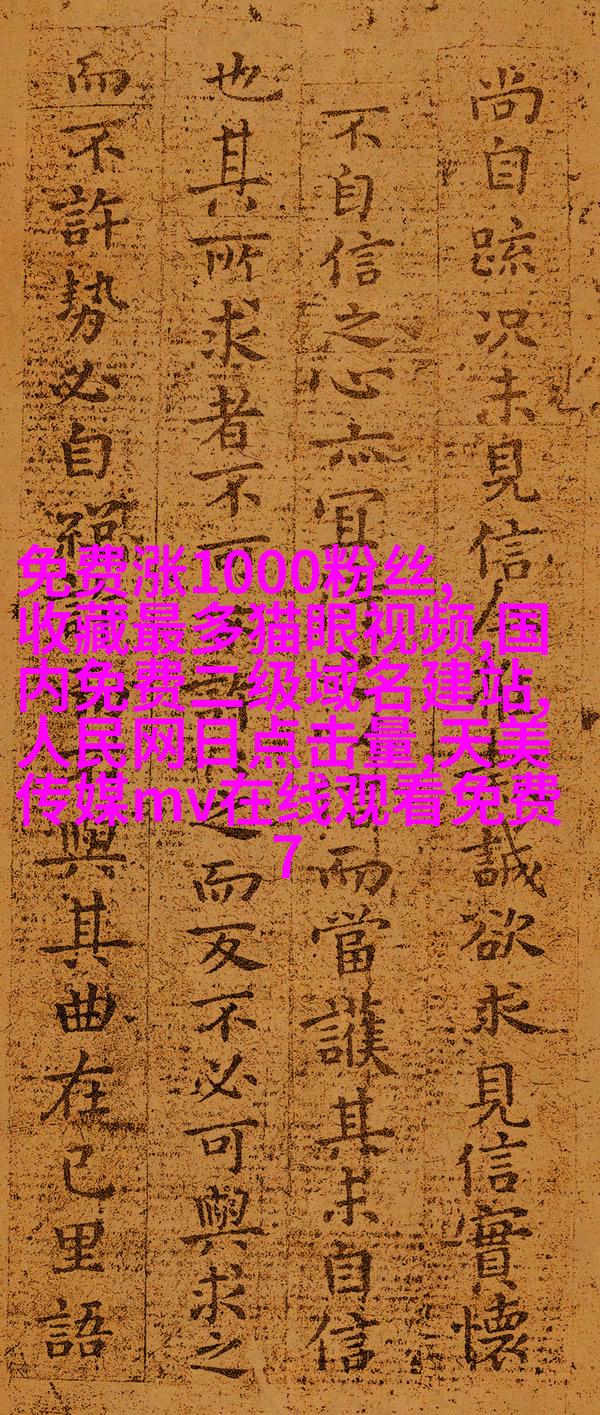 尚自疏況未見信人誠欲求見信實懷
不自信之心亦而當護其未自信
也其所求者不可之而反不必可與求之
而不許勢必自與其曲在己里語
免费涨1000粉丝,
收藏最多猫眼视频,国
内免费二级域名建站,
人民网日点击量,天美
传媒mv在线观看免费
7